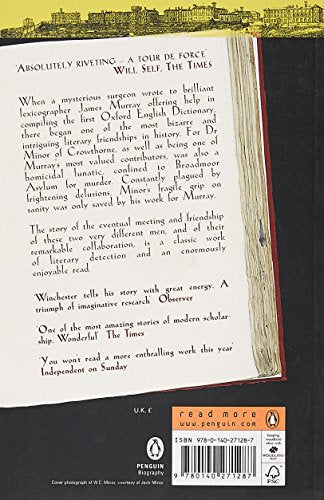 'ABSOLUTELY RIVETING – A TOUR DE FORCE'
WILL SELF, THE TIMES
When a mysterious surgeon wrote to brilliant
lexicographer James Murray offering help in
compiling the first Oxford English Dictionary,
there began one of the most bizarre and
intriguing literary friendships in history. For Dr
Minor of Crowthorne, as well as being one of
Murray's most valued contributors, was also a
homicidal lunatic, confined to Broadmoor
Asylum for murder. Constantly plagued by
frightening delusions, Minor's fragile grip on
sanity was only saved by his work for Murray.
The story of the eventual meeting and friendship
of these two very different men, and of their
remarkable collaboration, is a classic work
of literary detection and an enormously
enjoyable read.
Winchester tells his story with great energy. A
triumph of imaginative research' Observer
'One of the most amazing stories of modern scholar-
ship. Wonderful' The Times
'You won't read a more enthralling work this year'
Independent on Sunday
U.K. £
PENGUIN
Biography
Cover photograph of W.C. Minor, courtesy of Jack Minor
read more
www.penguin.com
ISBN 978-0-140-27128-7
9 780140 271287
WOODLAND
FSC